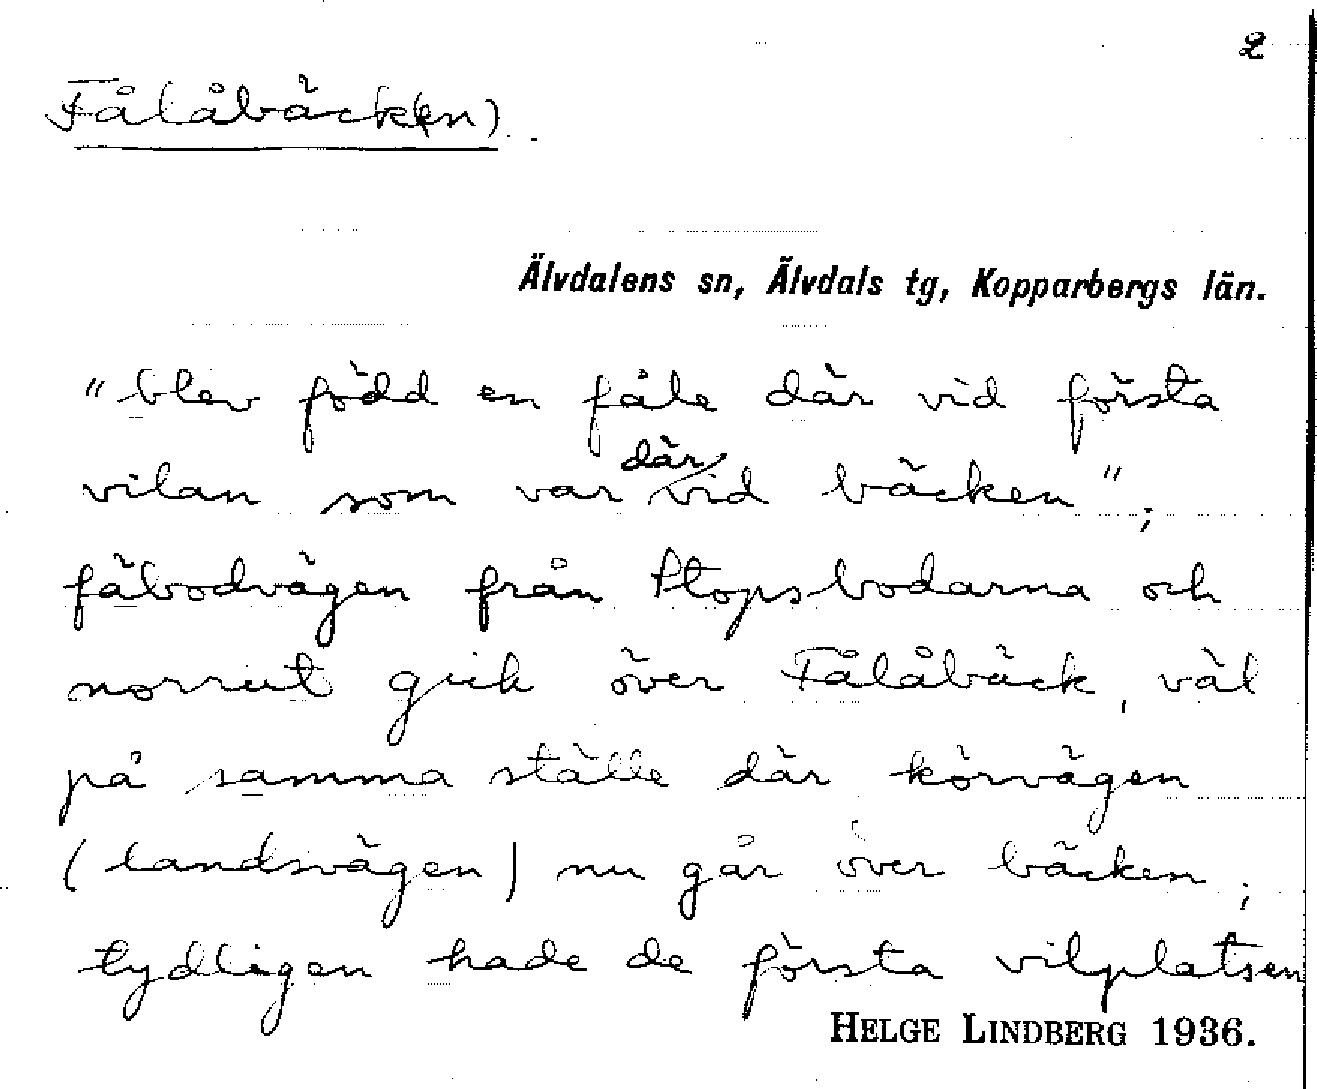 2
Fålåbäck(en).
Älvdalens sn, Älvdals tg, Kopparbergs län.
"blev född en fåle där vid första
där
vilan som var vid bäcken";
fäbodvägen från Stopsbodarna och
norrut gick över Fålåbäck, väl
på samma ställe där körvägen
(landsvägen) nu går över bäcken;
tydligen hade de första vilplatsen
HELGE LINDBERG 1936.